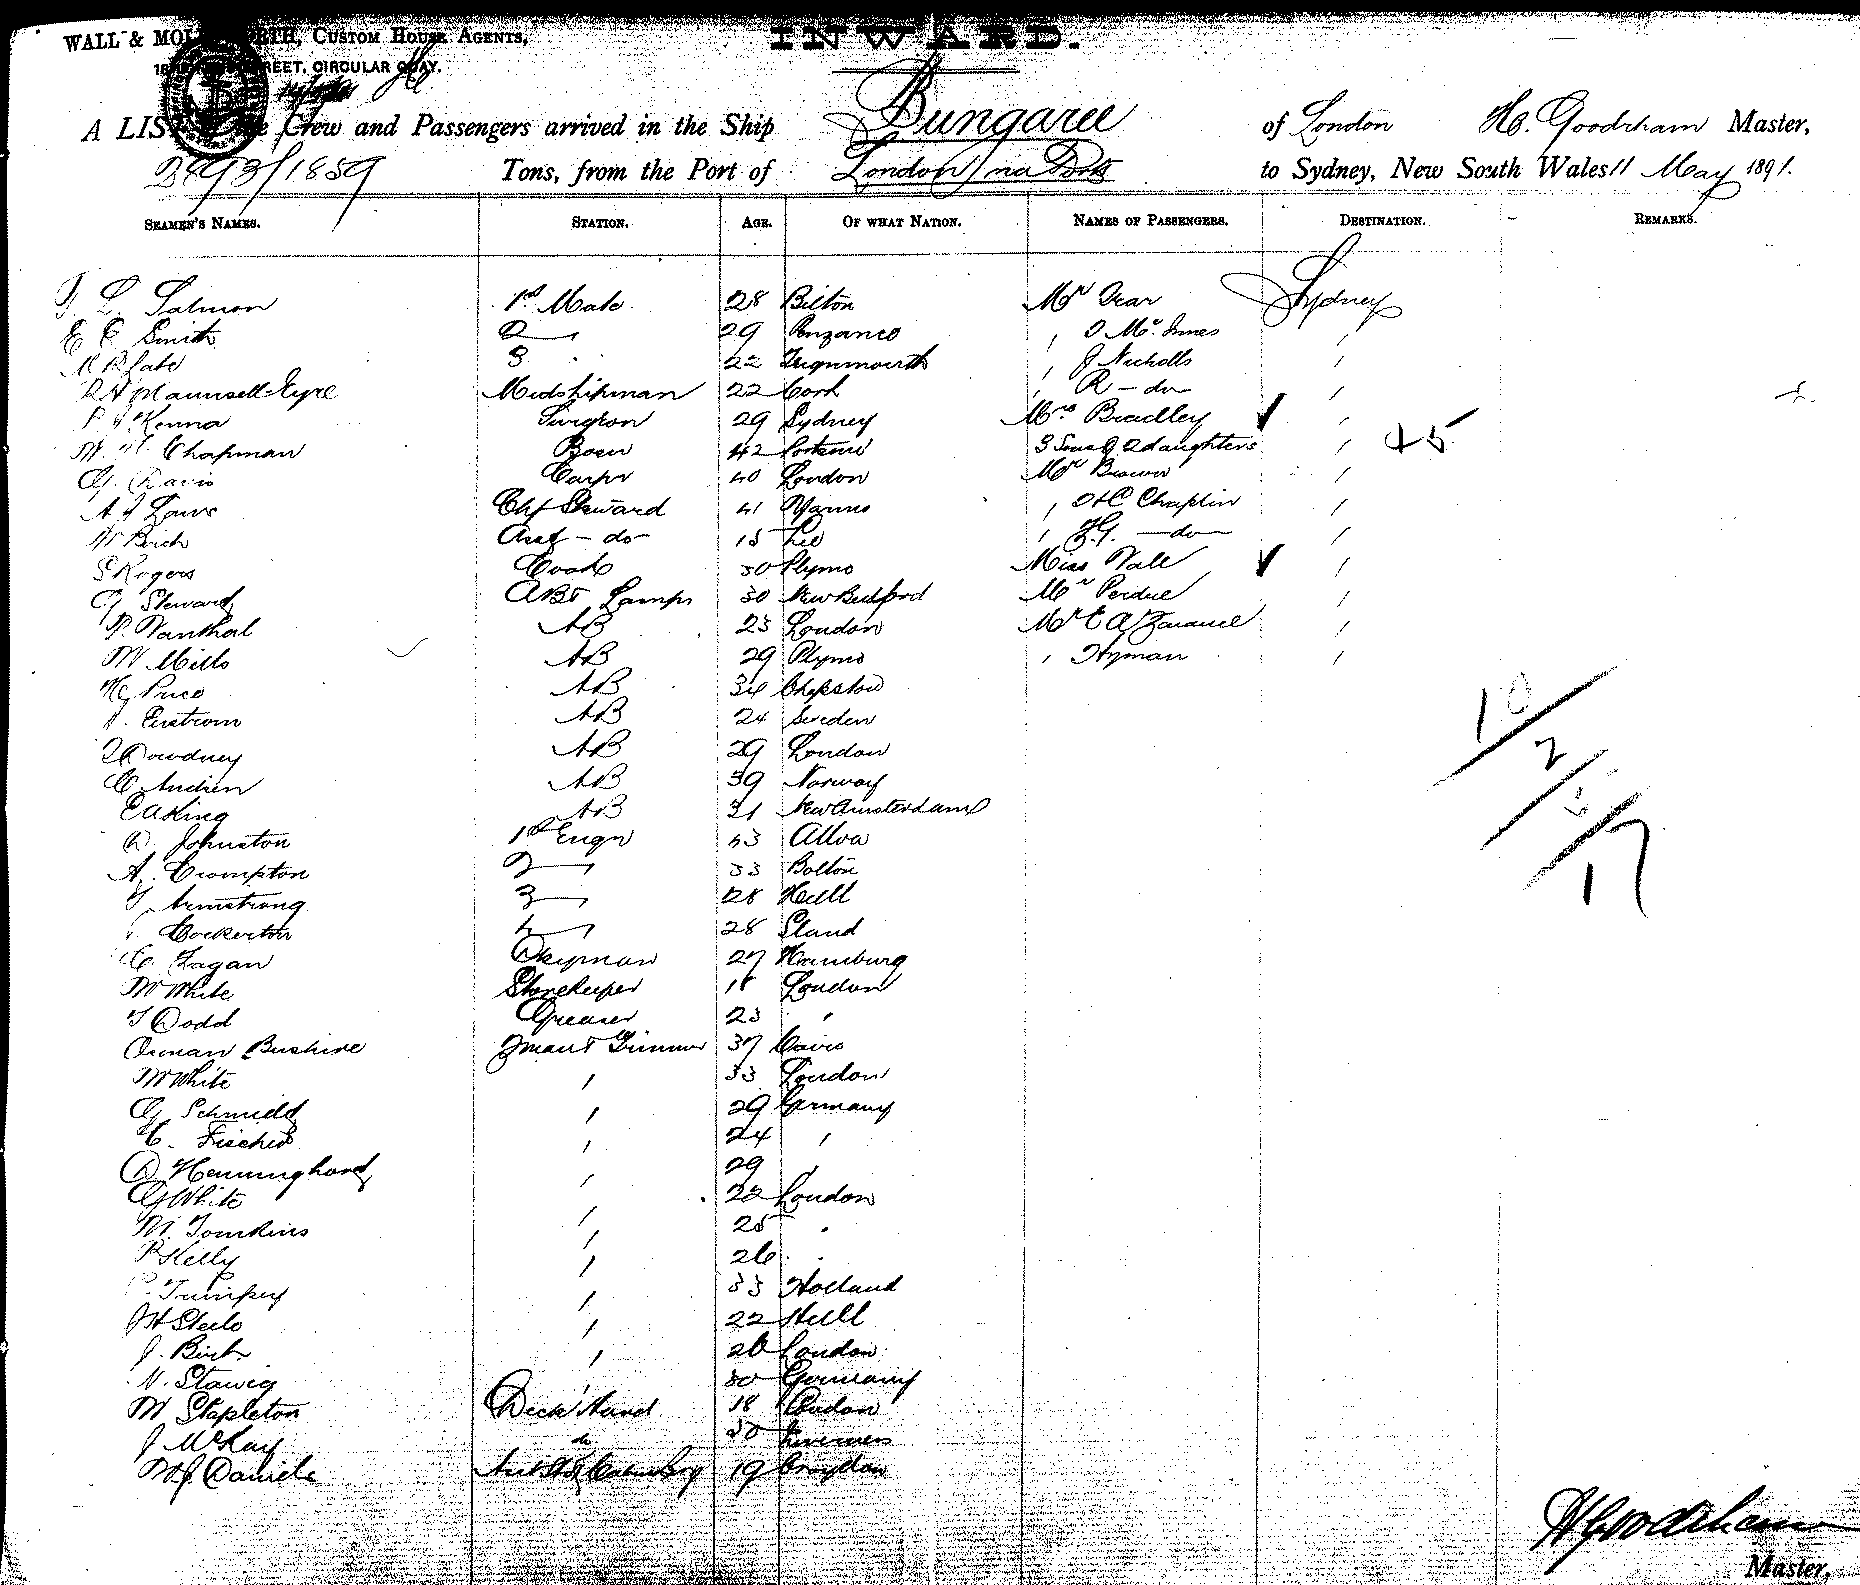 INWARD.
WALL & MOLESWORTH, CUSTOM HOUSE AGENTS,
STREET, CIRCULAR QUAY.
A LIST of the Crew and Passengers arrived in the Ship Bungaree of London H. Goodrham Master,
1859 Tons, from the Port of London via Ports to Sydney, New South Wales 11 May 1891.
SEAMEN'S NAMES. STATION. AGE. OF WHAT NATION. NAMES OF PASSENGERS. DESTINATION. REMARKS.
L. Salmon 1st Mate 28 Bilton Mr Frar Sydney
E E Smith 2 29 Penzance " Mc Innes "
3 22 Teignmouth " J Nicholls "
R H Maunsell-Eyre Midshipman 22 Cork " R - do "
Kenna Surgeon 29 Sydney Mrs Bradley "
Chapman Bosn 42 3 Sons & 2 daughters " 45
G. Davis Carpr 40 London Mr Brown "
A J Laws Chf Steward 41 " Chaplin "
W Birch Asst - do - 15 " - do - "
S Rogers Cook 30 Plymo Miss Vale "
G Steward AB & Lamps 30 New Bedford Mr Perdue "
P. Vanthal AB 23 London Mr E A "
W Mills AB 29 Plymo " Hyman "
Hy Price AB 34 Chepstow
AB 24 Sweden
Cowdney AB 29 London
C Andren AB 39 Norway
E A King AB 21 New Amsterdam
D. Johnston 1st Engr 43 Alloa
A. Crompton 2 33 Bolton
T Armstrong 3 28 Hull
Cockerton 4 28 Sland
C. Lagan Dkyman 27 Hamburg
W White Storekeeper 18 London
T Dodd Greaser 23 "
Osman Bushire Fman & Trimmer 37 Cairo
W White " 33 London
G Schmidt " 29 Germany
C. Fischer " 24 "
D Henninghand " 29 "
G White " 28 London
W. Tomkins " 25 "
P Kelly " 26 "
" 33 Holland
W Steele " 22 Hull
J. Birch " 26 London
N. Stawig " 30 Germany
W Stapleton Deck Hand 18 London
J McKay do 30 Inverness
W J Daniels 19 Croydon
10
2
17
H Goodrham
Master.